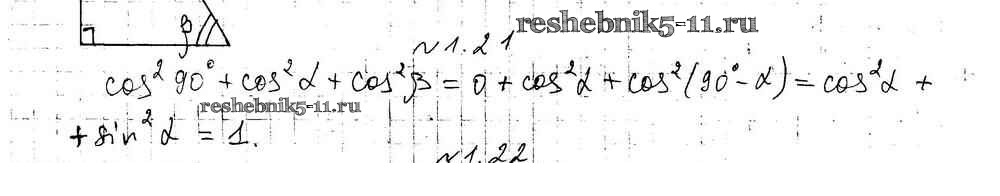 β
reshebnik5-11.ru
№1.21
cos² 90° + cos² α + cos² β = 0 + cos² α + cos² (90° - α) = cos² α +
reshebnik5-11.ru
+ sin² α = 1.
№1.22